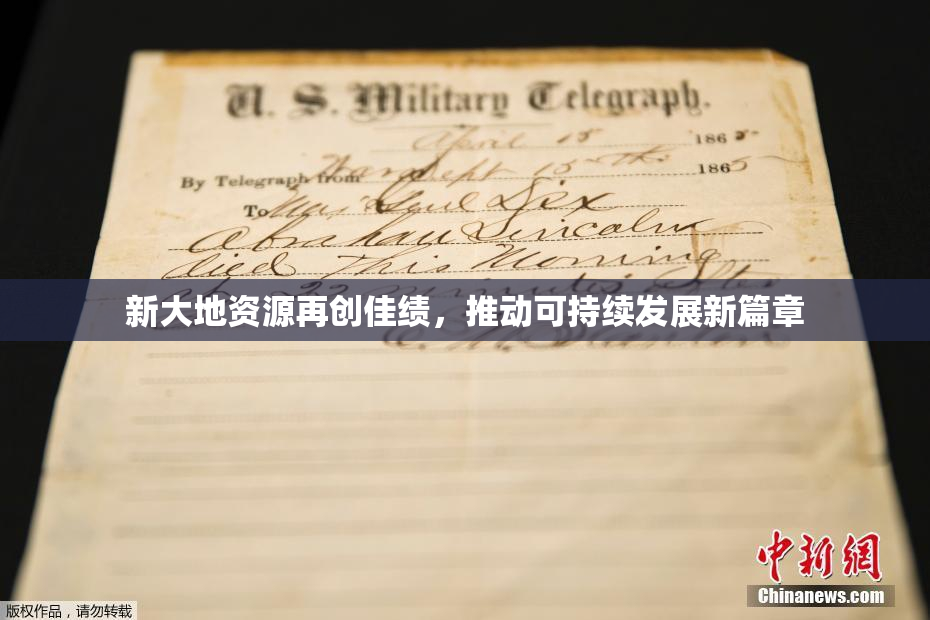 U. S. Military Telegraph.
April 15 1865
By Telegraph from War Dept 15th 1865
To Maj Genl Dix
Abraham Lincoln
died This Morning
at 22 minutes after
新大地资源再创佳绩，推动可持续发展新篇章
E. M. Stanton
中新網
Chinanews.com
版权作品，请勿转载